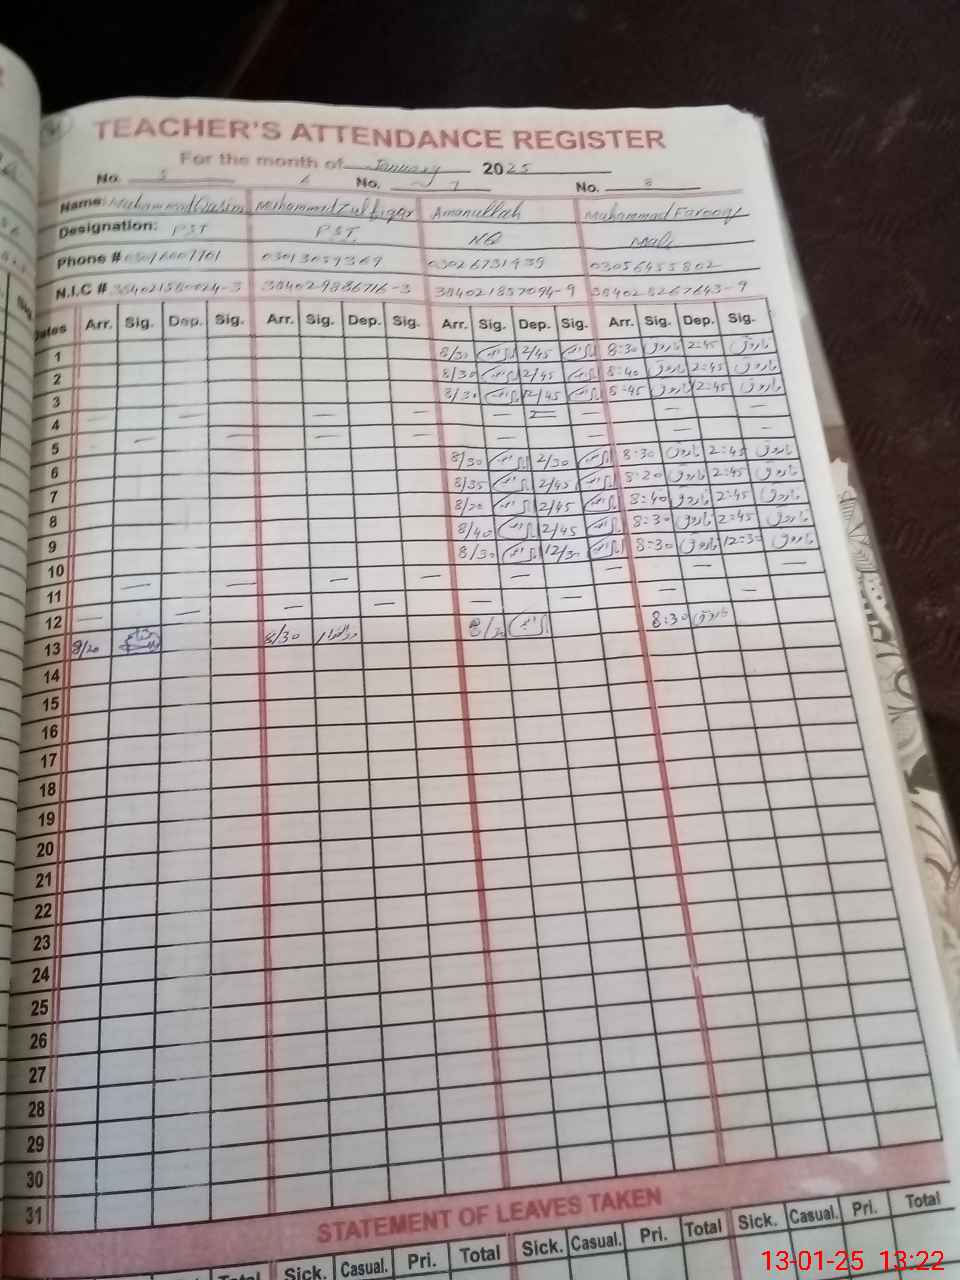 TEACHER'S ATTENDANCE REGISTER
For the month of January 2025
No. 5 6 No. 7 No. 8
Name: Muhammad Qasim Muhammad Zulfiqar Amanullah Muhammad Farooq
Designation: PST PST NQ Mali
Phone # 03013059369 03026731439 03056455802
N.I.C # 384029886716-3 384021857094-9 384028267643-9
Dates Arr. Sig. Dep. Sig. Arr. Sig. Dep. Sig. Arr. Sig. Dep. Sig. Arr. Sig. Dep. Sig.
1 8/30 2/45 8:30 فاروق 2:45 فاروق
2 8/30 2/45 8:40 فاروق 2:45 فاروق
3 8/30 12/45 8:45 فاروق 2:45 فاروق
4 — — — — — = — — —
5 — — — — — —
6 8/30 2/30 8:30 فاروق 2:45 فاروق
7 8/35 2/45 8:20 فاروق 2:45 فاروق
8 8/20 2/45 8:40 فاروق 2:45 فاروق
9 8/40 2/45 8:30 فاروق 2:45 فاروق
10 8/30 12/30 8:30 فاروق 12:30 فاروق
11 — — — — — — — —
12 — — — — — — — —
13 8/20 8/30 8/20 8:30 فاروق
14
15
16
17
18
19
20
21
22
23
24
25
26
27
28
29
30
31
STATEMENT OF LEAVES TAKEN
Total Sick. Casual. Pri. Total Sick. Casual. Pri. Total Sick. Casual. Pri. Total
13-01-25 13:22